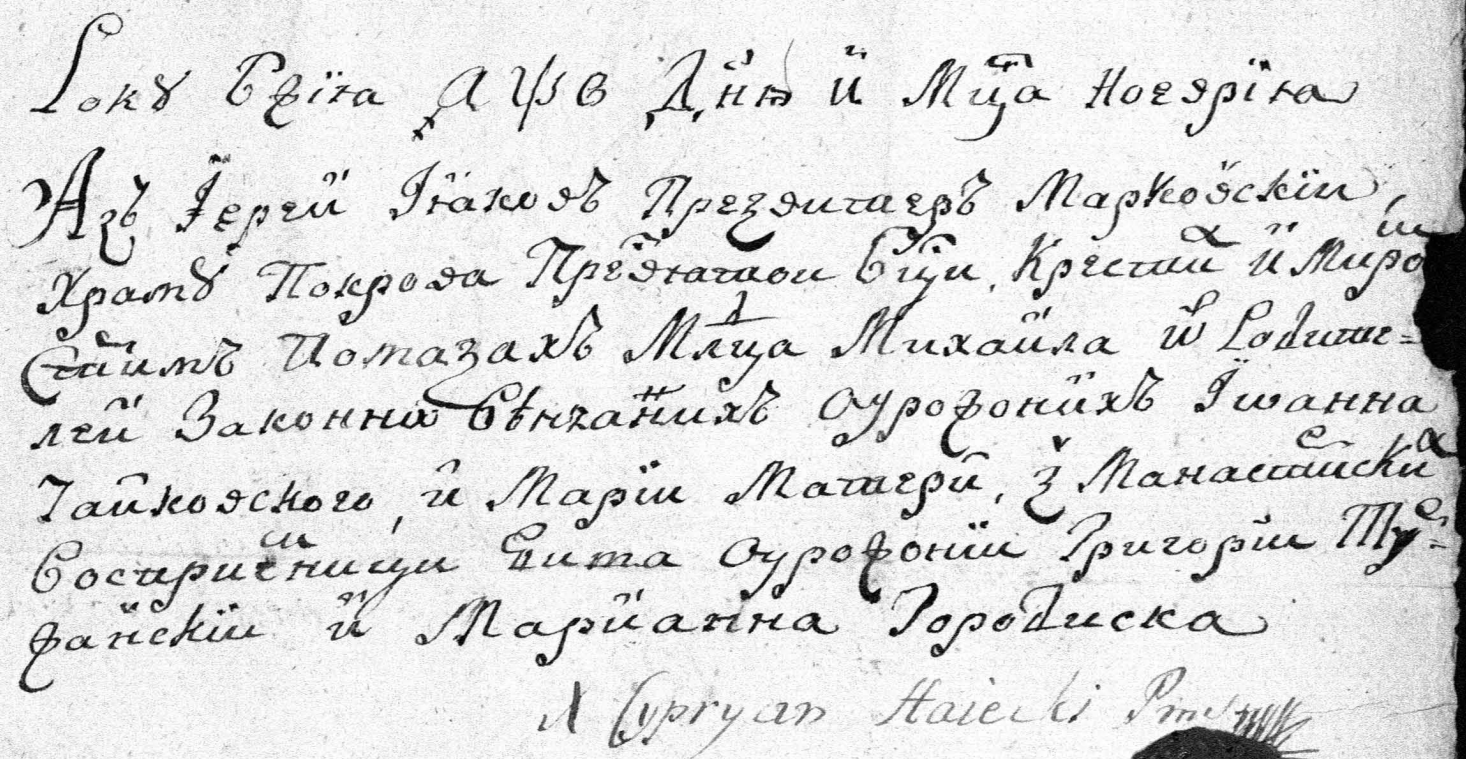 Року Бжїѧ ҂АѰВ Днѧ и҃ Мцⷭ҇а Ноеврїѧ
Азъ Іерей Іѧковъ Презвитеръ Марковскїи,
Храмꙋ Покрова Прест҃ѧтои Бцⷣи, Крестих и Миро
Ст҃имъ Помазахъ Млⷣца Михаила ѿ Родите=
лей Законних Вѣнчаннихъ Оурожонихъ Іѡанна
Чайковского, и Марїи Матери, з Манастирских
Воспрїемници Бита Оурожонїи Григорїи Ту=
жанскїи и Марианна Городиска
X Cypryan